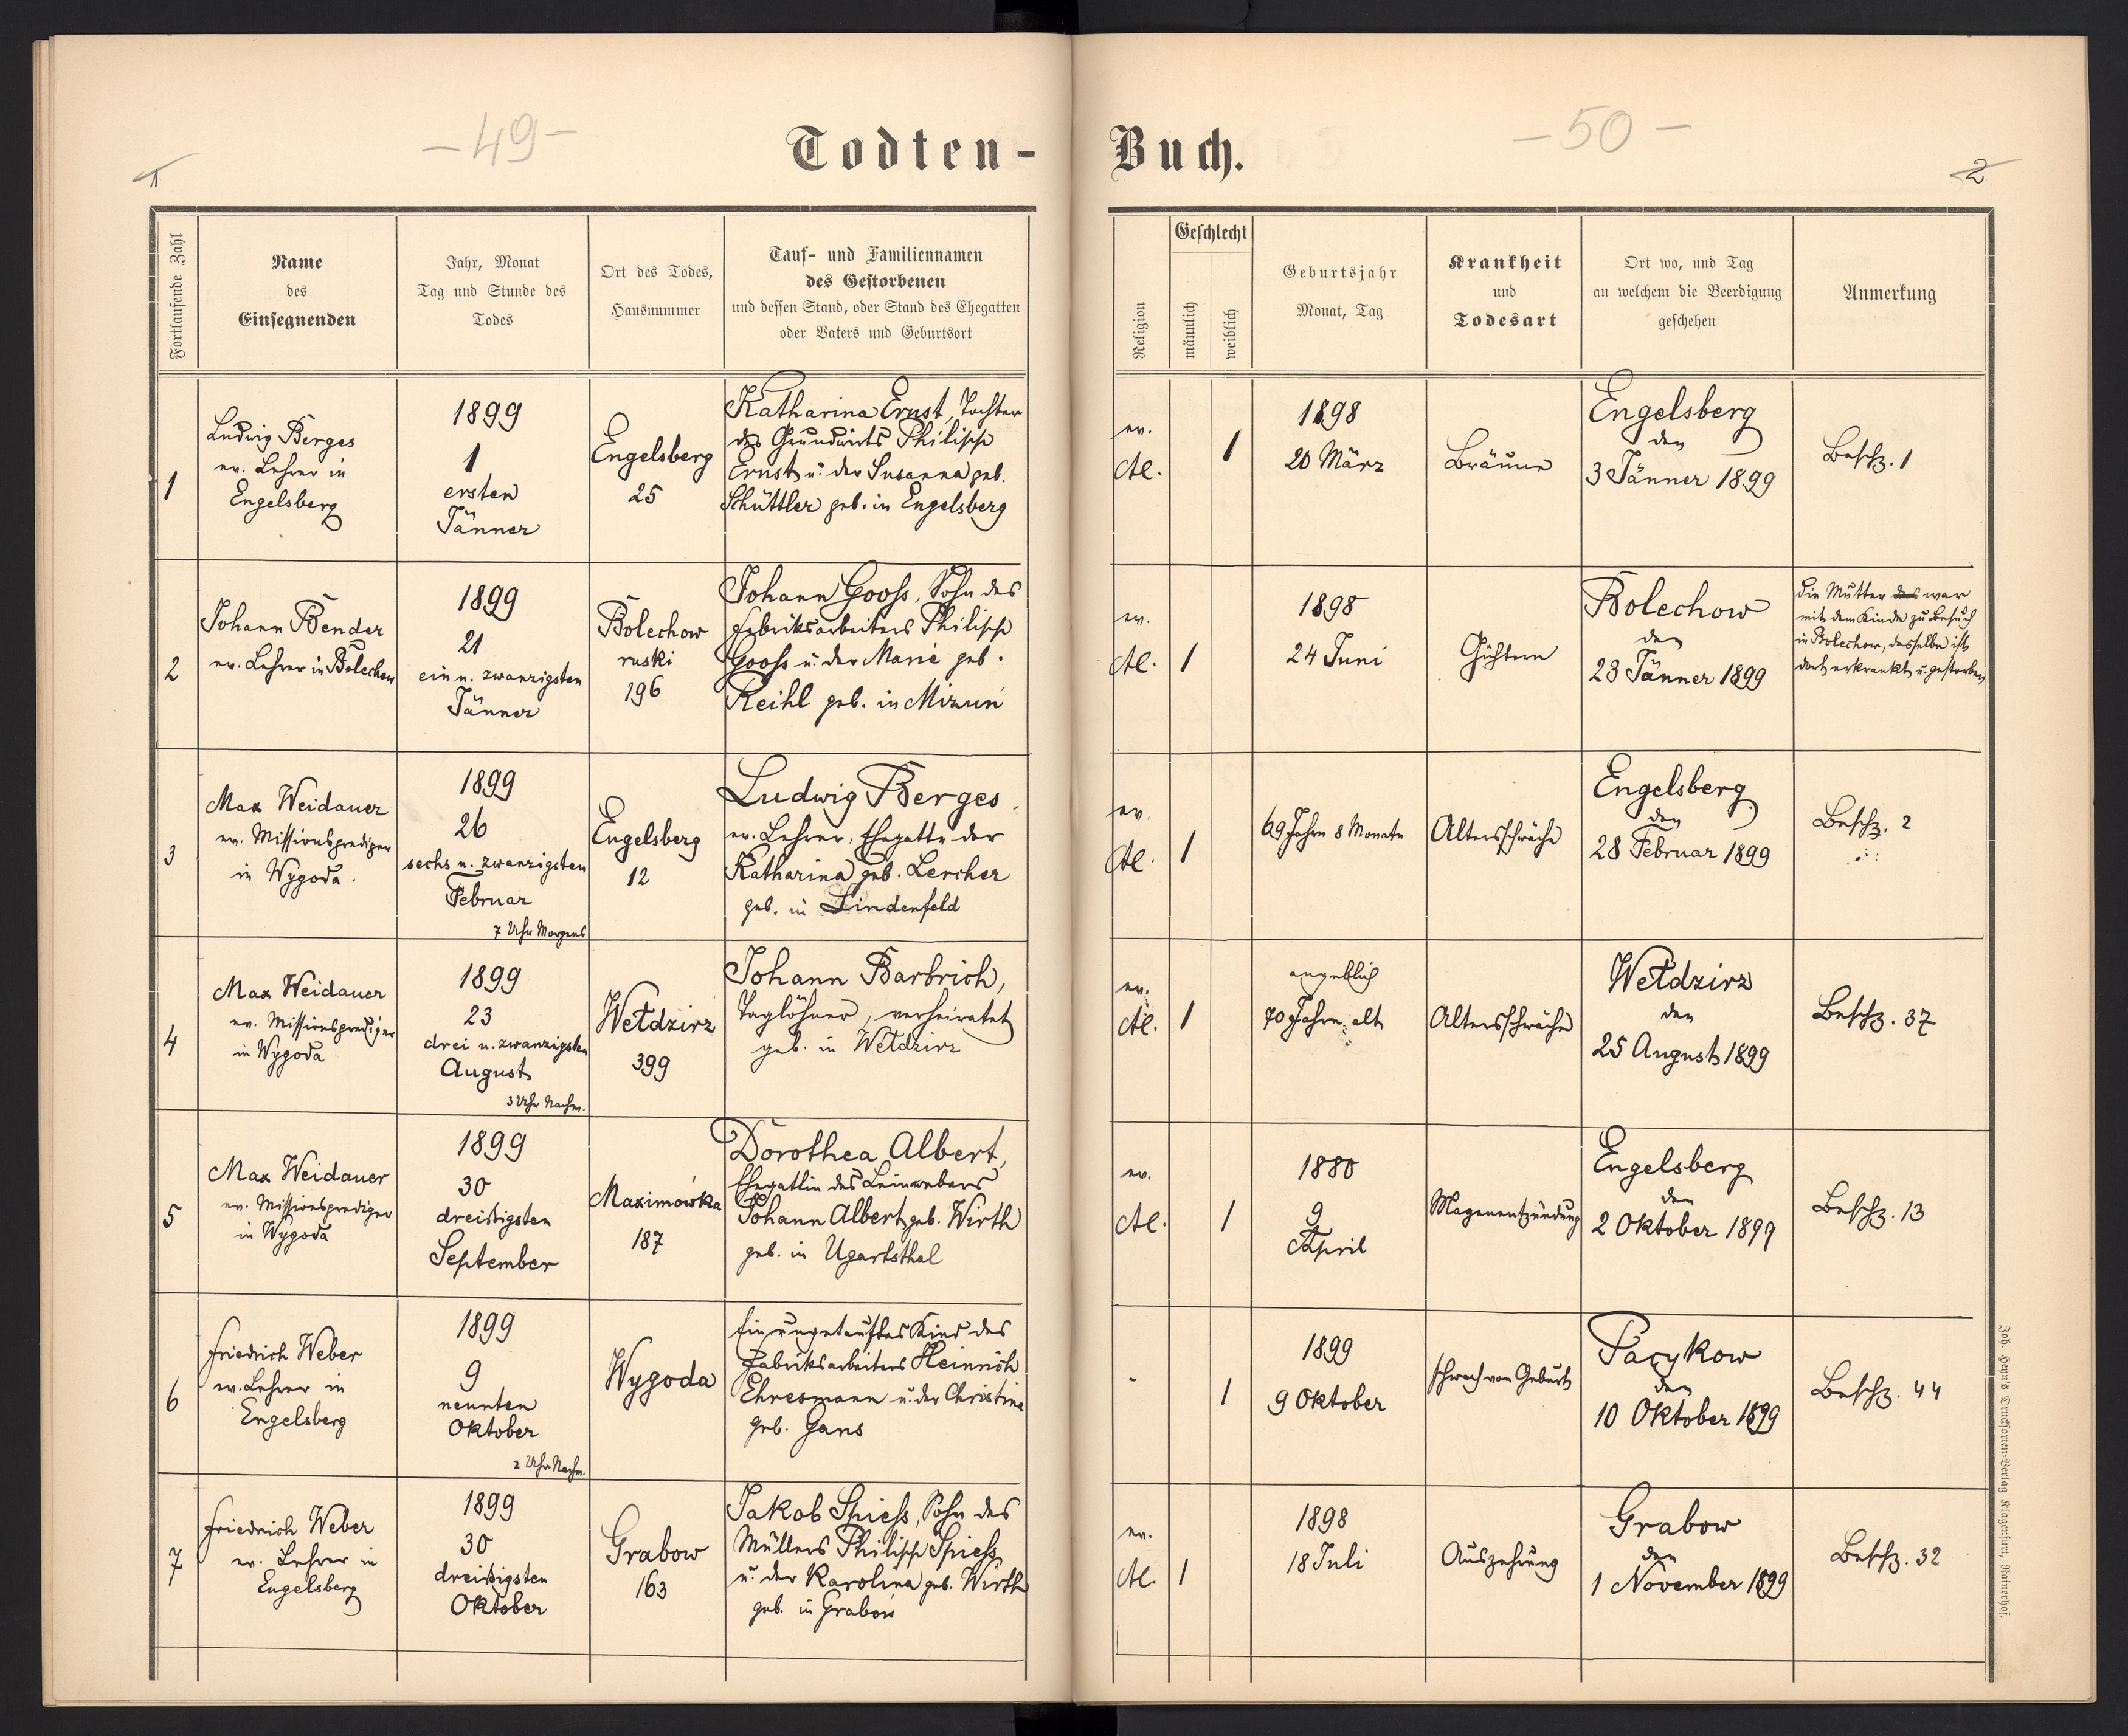 -49-
Todten-
1
Fortlaufende Zahl
Name
des
Einsegnenden
Jahr, Monat
Tag und Stunde des
Todes
Ort des Todes,
Hausnummer
Tauf- und Familiennamen
des Gestorbenen
und dessen Stand, oder Stand des Ehegatten
oder Vaters und Geburtsort
1
Ludwig Berges
ev. Lehrer in
Engelsberg
1899
1
ersten
Jänner
Engelsberg
25
Katharina Ernst, Tochter
des Grundwirts Philipp
Ernst u. der Susanna geb.
Schüttler geb. in Engelsberg
2
Johann Bender
ev. Lehrer in Bolechow
1899
21
ein u. zwanzigsten
Jänner
Bolechow
ruski
196
Johann Gooss, Sohn des
Fabriksarbeiters Philipp
Gooss u. der Marie geb.
Reihl geb. in Mizuń
3
Max Weidauer
ev. Missionsprediger
in Wygoda.
1899
26
sechs u. zwanzigsten
Februar
7 Uhr Morgens
Engelsberg
12
Ludwig Berges,
ev. Lehrer, Ehegatte der
Katharina geb. Lercher
geb. in Lindenfeld
4
Max Weidauer
ev. Missionsprediger
in Wygoda
1899
23
drei u. zwanzigsten
August
3 Uhr Nachm.
Wetdzirz
399
Johann Barbrich,
Taglöhner, verheiratet
geb. in Wetdzirz
5
Max Weidauer
ev. Missionsprediger
in Wygoda
1899
30
dreißigsten
September
Maximówka
187
Dorothea Albert,
Ehegattin des Leinwebers
Johann Albert, geb. Wirth
geb. in Ugartsthal
6
Friedrich Weber
ev. Lehrer in
Engelsberg
1899
9
neunten
Oktober
2 Uhr Nachm.
Wygoda
Ein ungetauftes Kind des
Fabriksarbeiters Heinrich
Ehresmann u. der Christina
geb. Gans
7
Friedrich Weber
ev. Lehrer in
Engelsberg
1899
30
dreißigsten
Oktober
Grabow
163
Jakob Spiess, Sohn des
Müllers Philipp Spiess
u. der Karolina geb. Wirth
geb. in Grabow
-50-
Buch.
2
Religion
Geschlecht
männlich
weiblich
Geburtsjahr
Monat, Tag
Krankheit
und
Todesart
Ort wo, und Tag
an welchem die Beerdigung
geschehen
Anmerkung
ev.
A.C.
1
1898
20 März
Bräune
Engelsberg
den
3 Jänner 1899
Besch. 1
ev.
A.C.
1
1898
24 Juni
Gichtern
Bolechow
den
23 Jänner 1899
die Mutter des war
mit dem Kinde zu Besuch
in Bolechow, dasselbe ist
dort erkrankt u. gestorben
ev.
A.C.
1
69 Jahre 8 Monate
Altersschwäche
Engelsberg
den
28 Februar 1899
Besch. 2
ev.
A.C.
1
angeblich
70 Jahre alt
Altersschwäche
Wetdzirz
den
25 August 1899
Besch. 37
ev.
A.C.
1
1880
9
April
Magenentzündung
Engelsberg
den
2 Oktober 1899
Besch. 13
-
1
1899
9 Oktober
schwach von Geburt
Pacykow
den
10 Oktober 1899
Besch. 44
ev.
A.C.
1
1898
18 Juli
Auszehrung
Grabow
den
1 November 1899
Besch. 32
Joh. Heyn's Drucksorten-Verlag Klagenfurt, Rainerhof.